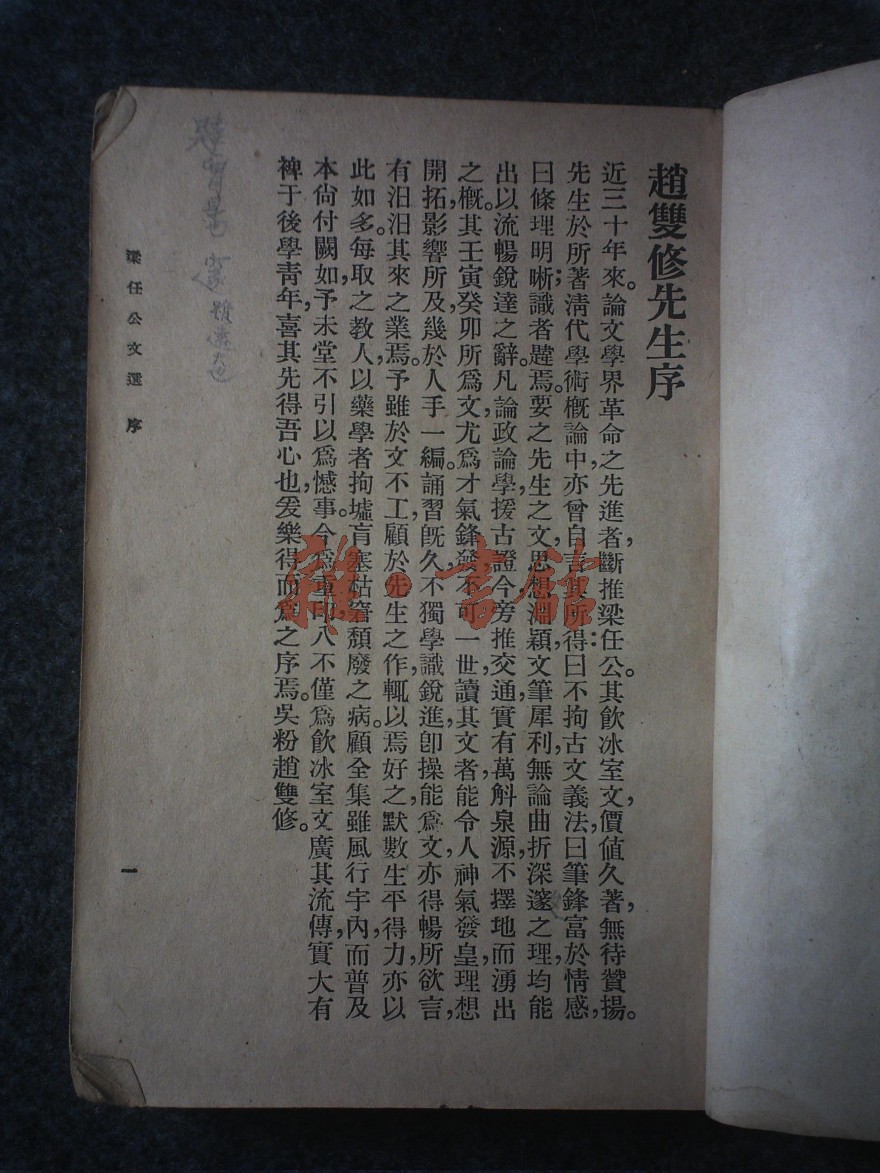 趙雙修先生序
近三十年來。論文學界革命之先進者，斷推梁任公。其飲冰室文，價値久著，無待贊揚。
先生於所著淸代學術槪論中，亦曾自言其所得：曰不拘古文義法，曰筆鋒富於情感，
曰條理明晰；識者韙焉。要之先生之文，思想淵穎，文筆犀利，無論曲折深邃之理，均能
出以流暢銳達之辭。凡論政論學，援古證今，旁推交通，實有萬斛泉源，不擇地而湧出
之槪。其壬寅，癸卯所爲文，尤爲才氣鋒發，不可一世，讀其文者，能令人神氣發皇，理想
開拓，影響所及，幾於人手一編。誦習旣久，不獨學識銳進，卽操能爲文，亦得暢所欲言，
有汨汨其來之業焉。予雖於文不工，顧於先生之作，輒以焉好之，默數生平得力，亦以
此如多。每取之敎人，以藥學者拘墟肓塞，枯窘頹廢之病。顧全集雖風行宇內，而普及
本尙付闕如，予未堂不引以爲憾事。今爲重印，八不僅爲飲冰室文廣其流傳，實大有
裨于後學靑年，喜其先得吾心也，爰樂得而爲之序焉。吳粉趙雙修。
梁任公文選 序
一
雜·書館